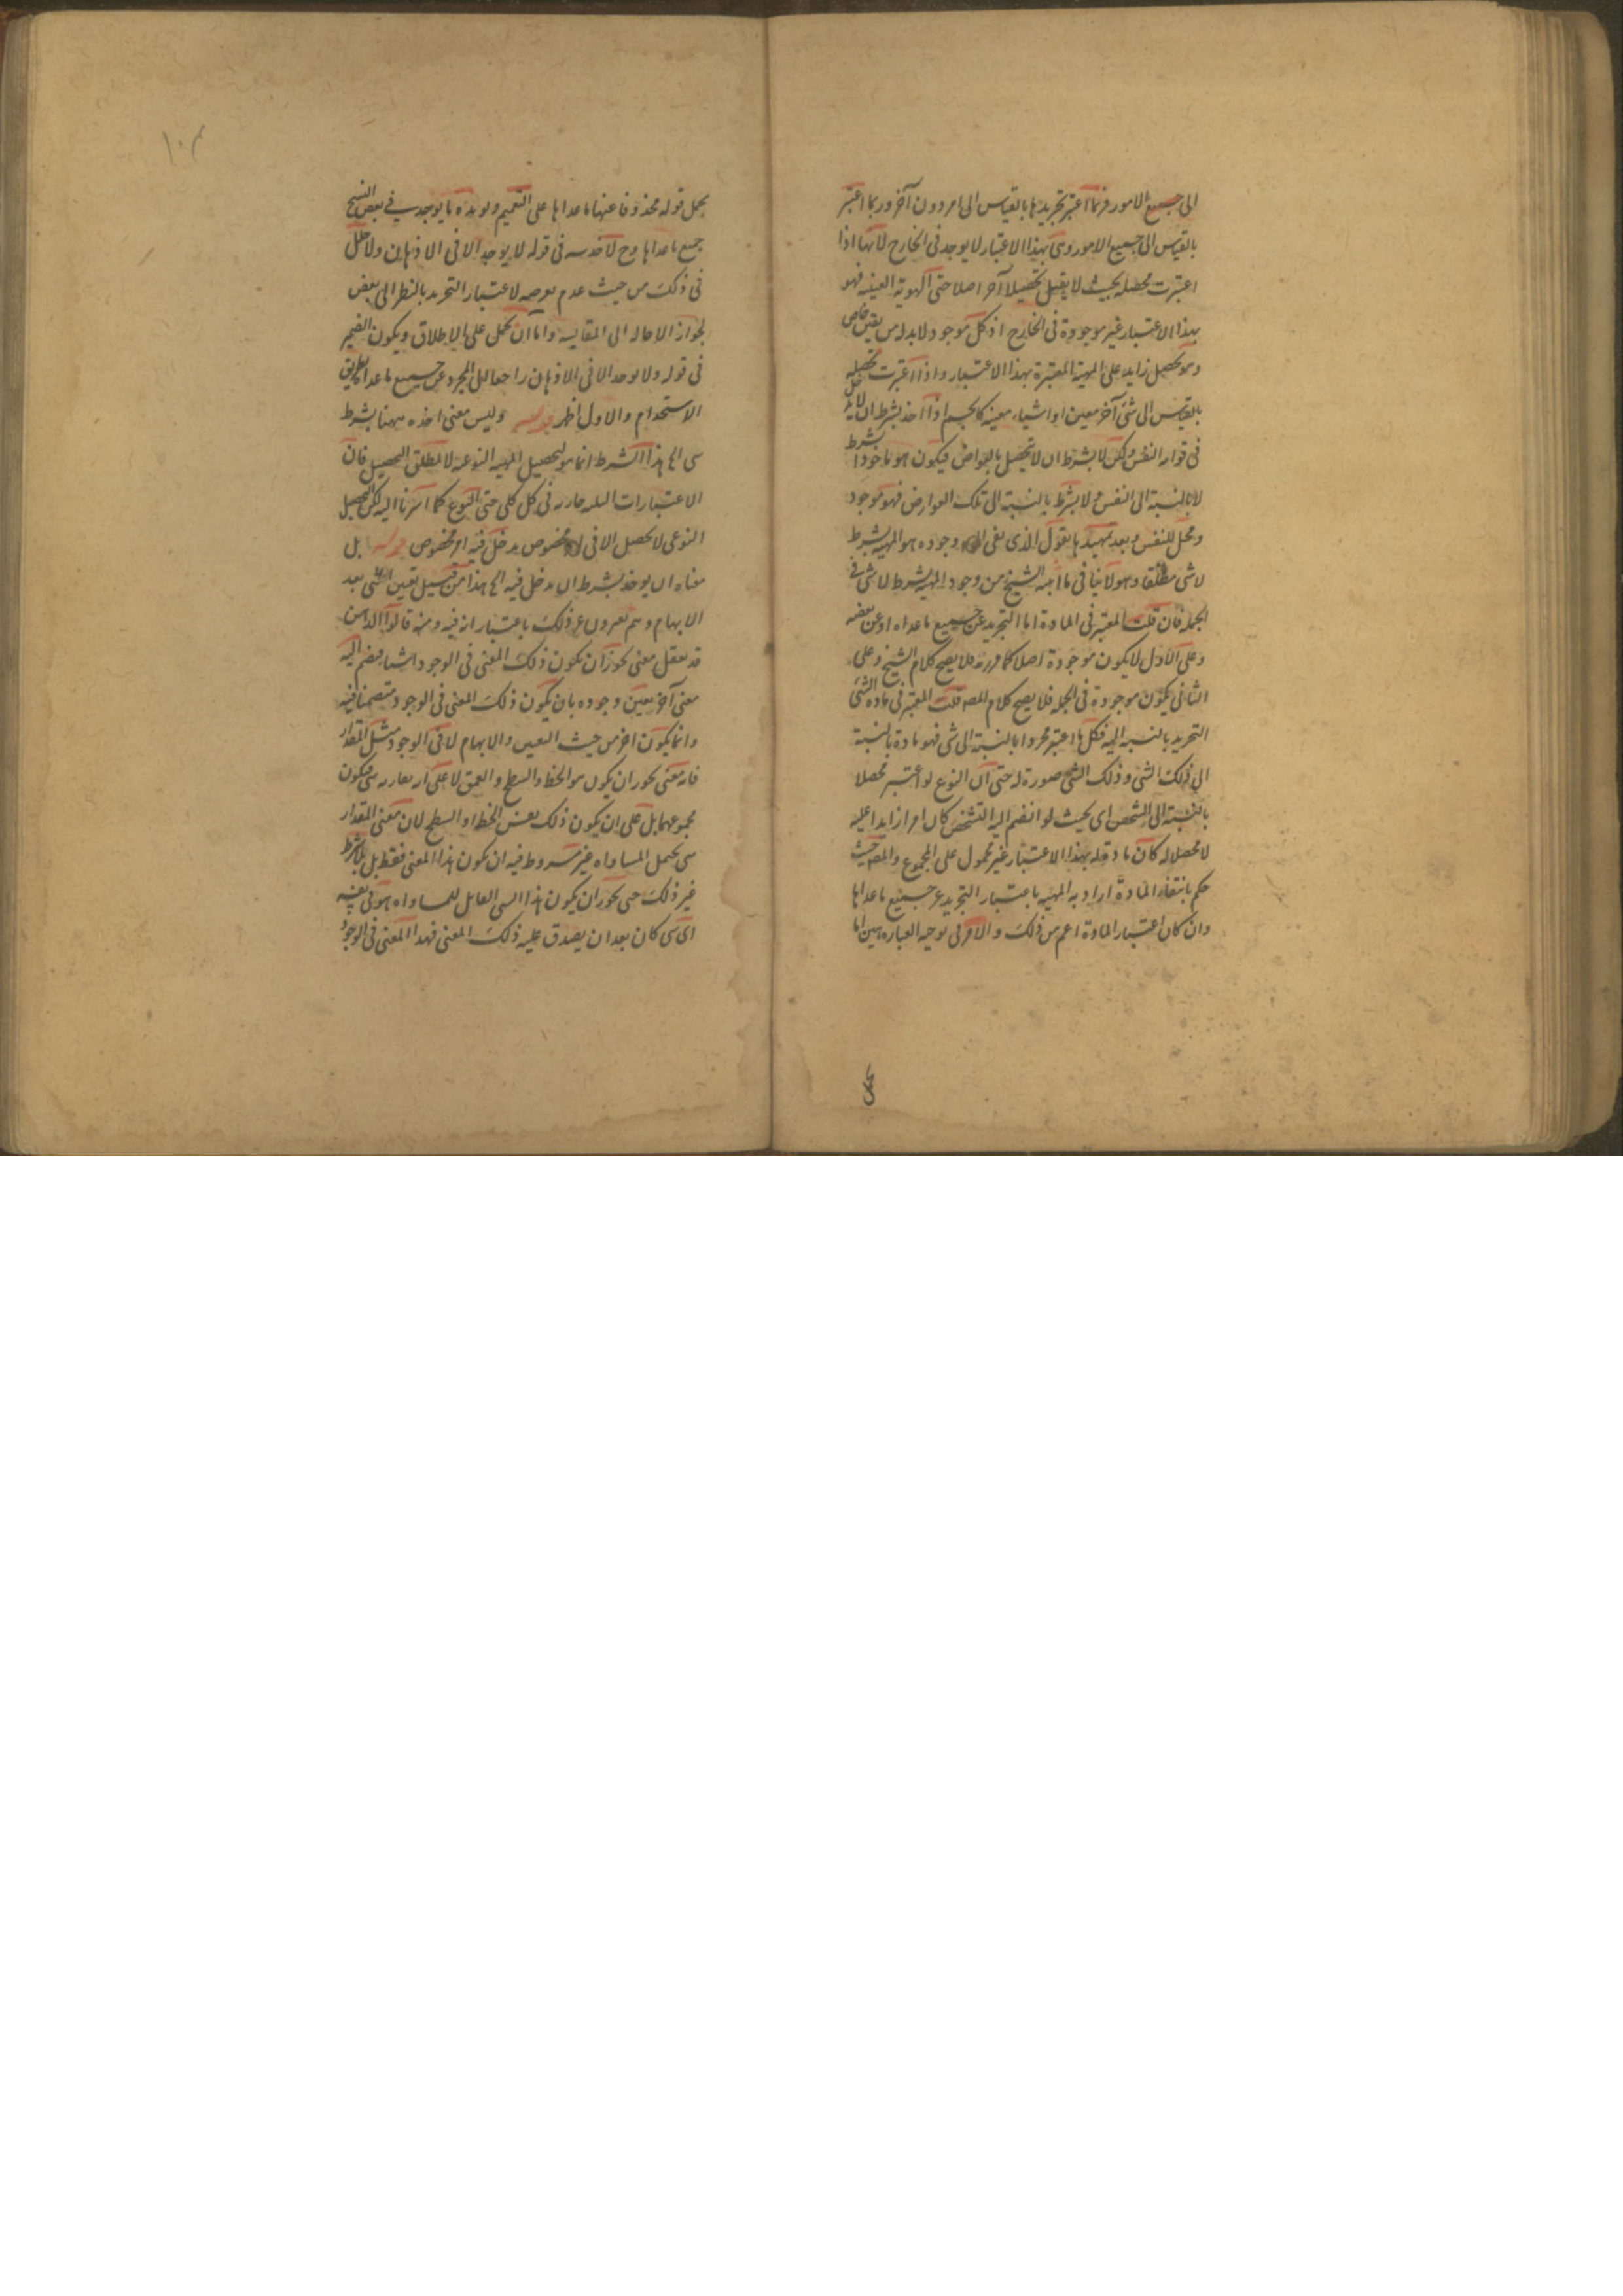 الى جميع الامور فربما اعتبر تجريدها بالقياس الى امر دون آخر وربما اعتبر
بالقياس الى جميع الامور وهى بهذا الاعتبار لا يوجد فى الخارج لانها اذا
اعتبرت محصله بحيث لا يقبل تحصيلا آخر اصلا حتى الهوية العينيه فهو
بهذا الاعتبار غير موجودة فى الخارج اذ كل موجود لابد له من تعين خاص
وهو تحصيل زايد على المهية المعتبرة بهذا الاعتبار واذا اعتبرت محصله
بالقياس الى شئ آخر معين او اشياء معينه كالجسم اذا اخذ بشرط ان لا يدخل
فى قوامه النفس ولكن لا بشرط ان لا تحصل بالعوارض فيكون هو ماخوذا بشرط
لا بالنسبة الى النفس ولا بشرط بالنسبة الى تلك العوارض فهو موجود
ومحل للنفس وبعد تمهيدها يقول الذى نفى وجوده هو المهية بشرط
لا شى مطلقا وهو لا ينافى ما اثبته الشيخ من وجود المهية بشرط لا شى فى
الجمله فان قلت المعتبر فى المادة اما التجريد عن جميع ماعداه او عن بعضه
وعلى الاول لا يكون موجودة اصلا كما قررته فلا يصح كلام الشيخ وعلى
الثانى يكون موجودة فى الجمله فلا يصح كلام المصه قلت المعتبر فى مادة الشئ
التجريد بالنسبه اليه فكل ما اعتبر مجردا بالنسبة الى شى فهو مادة بالنسبة
الى ذلك الشئ وذلك الشئ صورة له حتى ان النوع لو اعتبر محصلا
بالنسبة الى الشخص اى بحيث لو انضم اليه التشخص كان امرا زايدا عليه
لا محصلا له كان مادة له بهذا الاعتبار غير محمول على المجموع والمصه حيث
حكم بانتفاء المادة اراد به المهيه باعتبار التجريد عن جميع ماعداها
وان كان اعتبار المادة اعم من ذلك والامر فى توجيه العباره هين اما
يحمل
١٠٣
يحمل قوله محذوفا عنها ماعداها على التعميم ويويده ما يوجد فى بعض النسخ
جميع ماعداها وح لا خدشه فى قوله لا يوجد الا فى الاذهان ولا خلل
فى ذلك من حيث عدم تعرضه لاعتبار التجريد بالنظر الى بعض
لجواز الاحاله الى المقايسه واما ان يحمل على الاطلاق ويكون الضمير
فى قوله ولا يوجد الا فى الاذهان راجعا الى المجرد عن جميع ماعداه بطريق
الاستخدام والاول اظهر قوله وليس معنى اخذه ههنا بشرط
شى الى هذا الشرط انما هو لتحصيل المهيه النوعيه لا لمطلق التحصيل فان
الاعتبارات الثلثه جاريه فى كل كلى حتى النوع كما اشرنا اليه لكن التحصيل
النوعى لا يحصل الا فى مخصوص يدخل فيه امر مخصوص قوله بل
معناه ان يوخذ بشرط ان يدخل فيه الى هذا من قبيل تعين الشئ بعد
الابهام وهم يعبرون عن ذلك باعتبار انه فيه ومنه قالوا الذهن
قد يعقل معنى يجوز ان يكون ذلك المعنى فى الوجود اشيا فيضم اليه
معنى آخر يعين وجوده بان يكون ذلك المعنى فى الوجود متضمنا فيه
وانما يكون اخر من حيث التعين والابهام لا فى الوجود مثل المقدار
فانه معنى يجوز ان يكون هو الخط والسطح والعمق لا على ان يقارنه شى فيكون
مجموعهما بل على ان يكون ذلك نفس الخط او السطح لان معنى المقدار
شى يحتمل المساواه غير مشروط فيه ان يكون هذا المعنى فقط بل بلا شرط
غير ذلك حتى يجوز ان يكون هذا الشى القابل للمساواه هو فى نفسه
اى شى كان بعد ان يصدق عليه ذلك المعنى فهذا المعنى فى الوجود